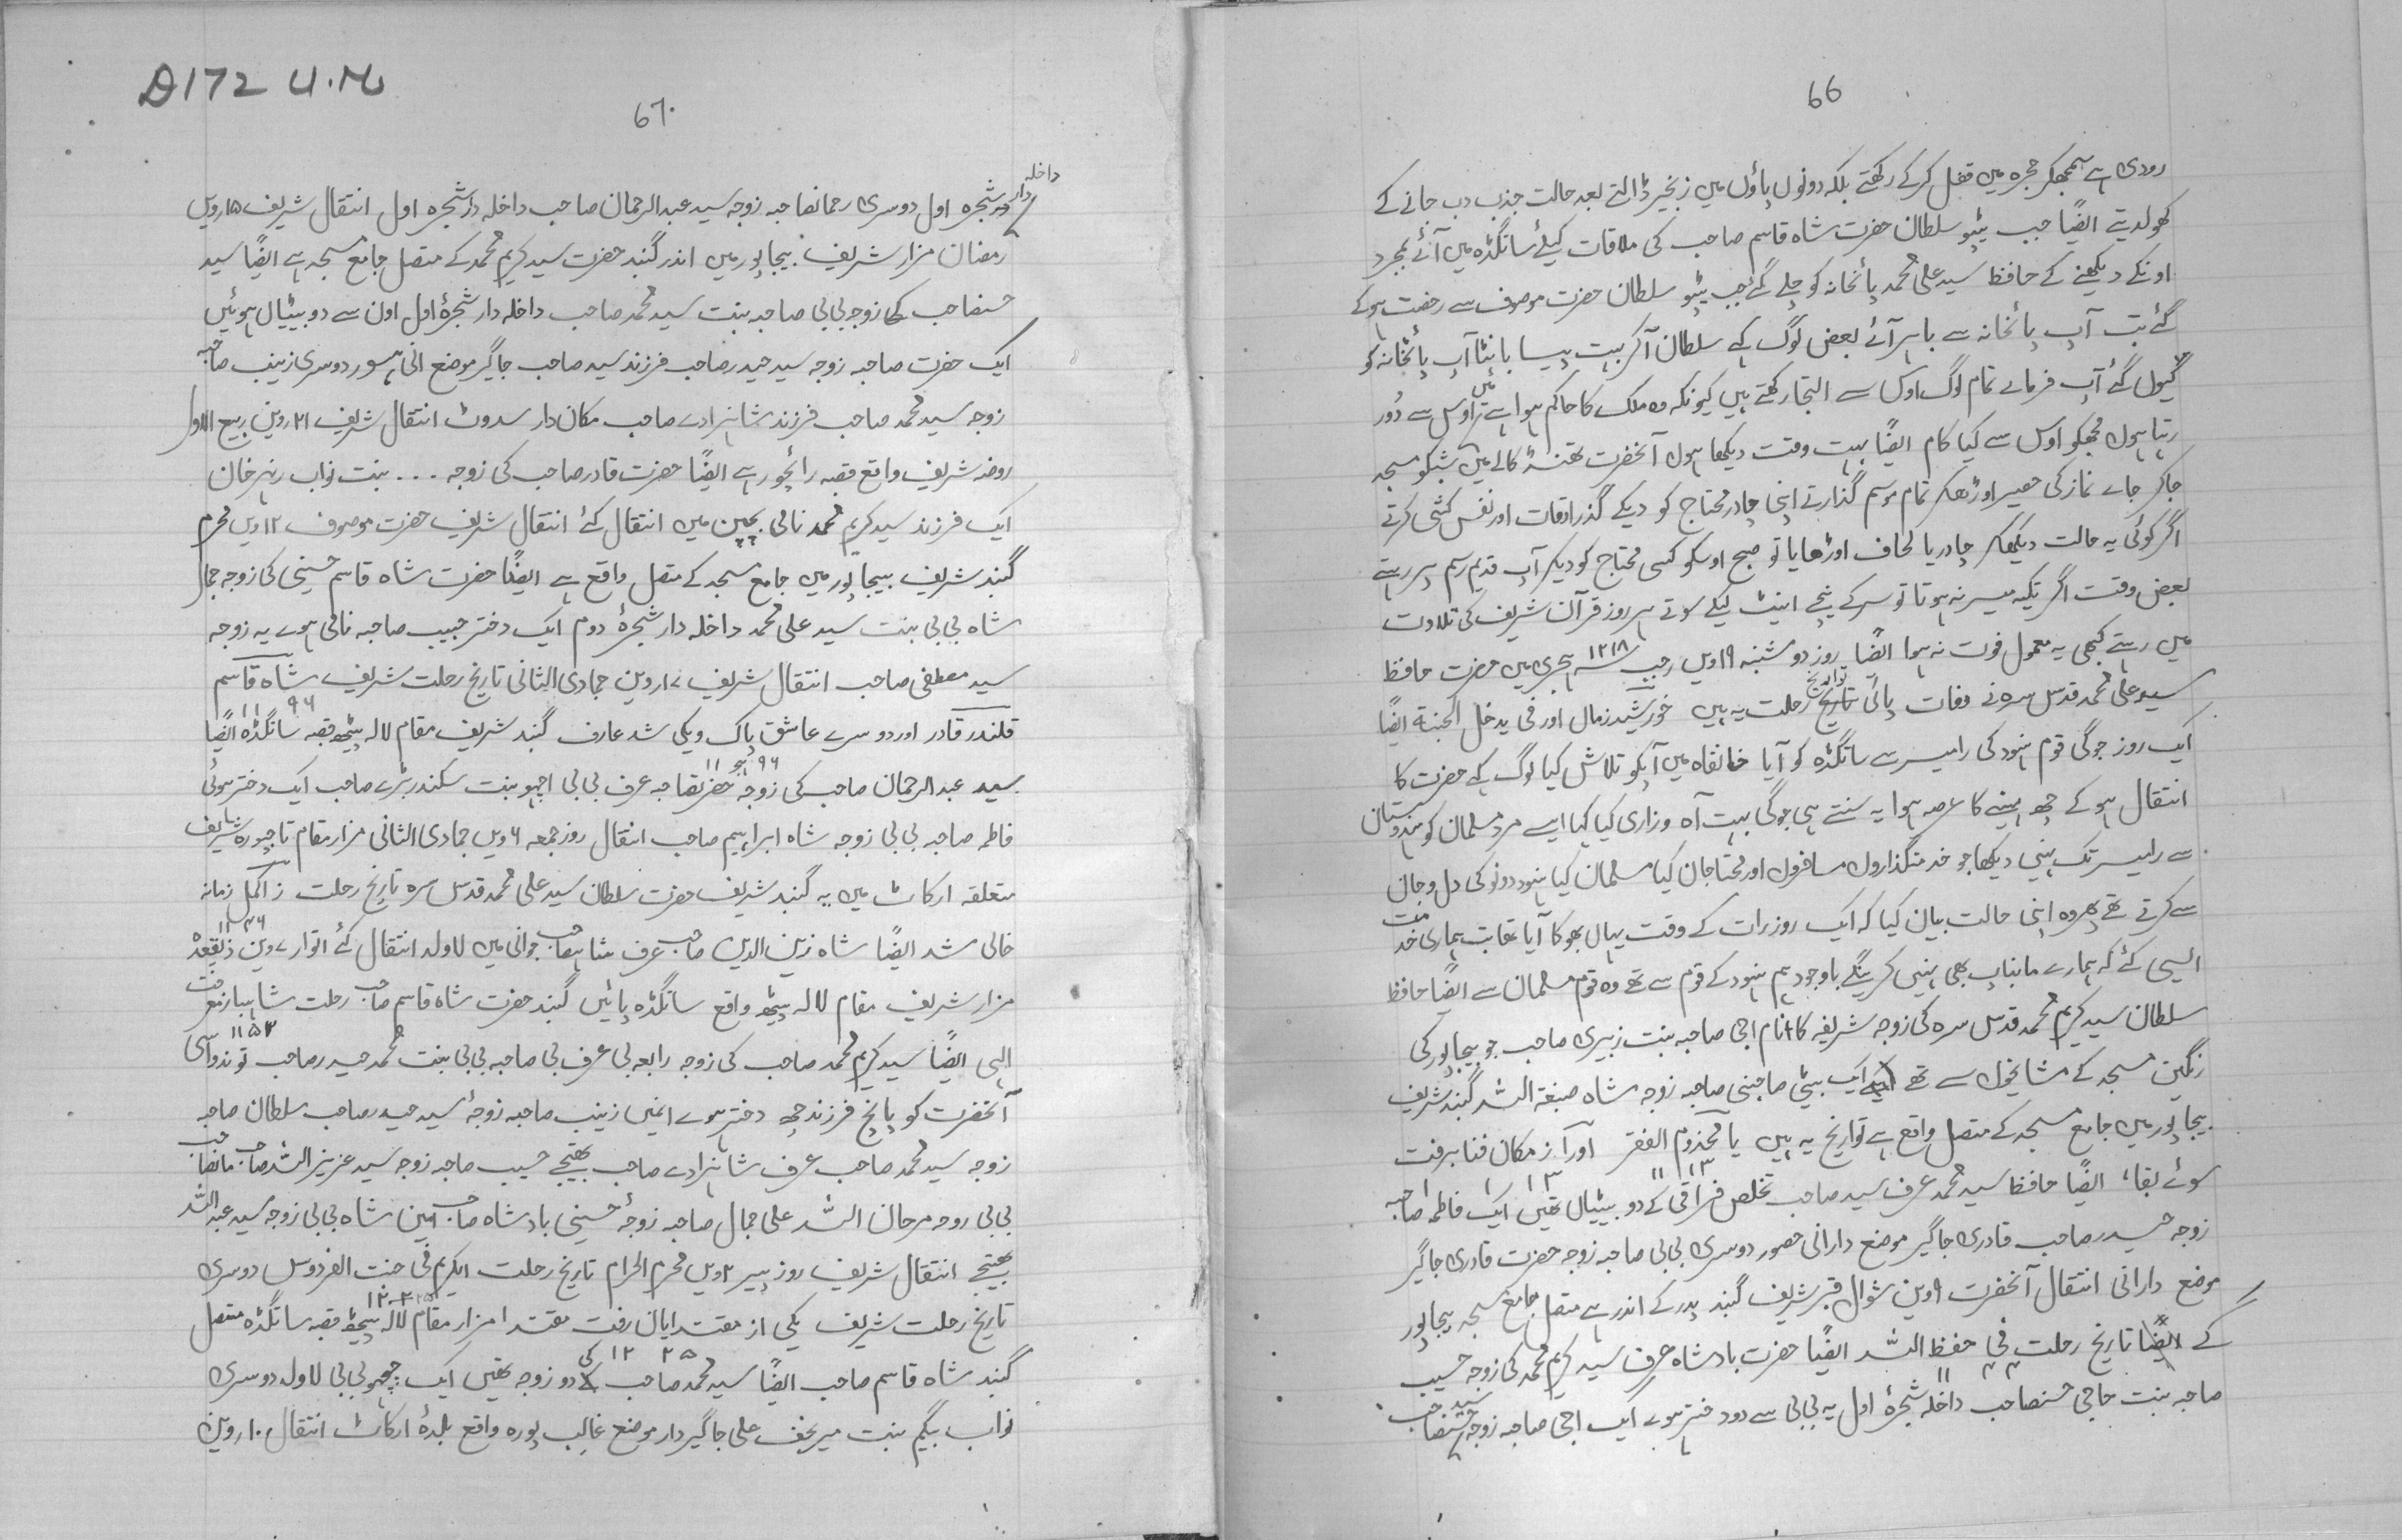 66
رودی ہے سمجھکر حجرہ میں قفل کرکے رکھتے بلکہ دونوں پاؤں میں زنجیر ڈالتے بعد حالت جذب دب جانے کے
کھولدیتے ایضًا جب ٹیپو سلطان حضرت شاہ قاسم صاحب کی ملاقات کیلئے ساتگڈہ میں آئے بمجرد
اونکے دیکھنے کے حافظ سید علی محمد پائخانہ کو چلے گئے جب ٹیپو سلطان حضرت موصوف سے رخصت ہوکے
گئے تب آپ پائخانہ سے باہر آئے بعض لوگ کہے سلطان آکر بہت پیسا بانٹا آپ پائخانہ کو
کیوں گئے آپ فرماے تمام لوگ اوس سے التجا رکھتے ہیں کیونکہ وہ ملک کا حاکم ہوا ہے میں تو اوس سے دُور
رہتا ہوں مجھکو اوس سے کیا کام ایضًا بہت وقت دیکھا ہوں آنحضرت تھنڈ کالے میں شبکو مسجد
جاکر جاے نماز کی حصیر اوڑھکر تمام موسم گذارتے اپنی چادر محتاج کو دیکے گذر اوقات اور نفس کشی کرتے
اگر کوئی یہ حالت دیکھکر چادر یا لحاف اوڑھایا تو صبح اوسکو کسی محتاج کو دیکر آپ قدیم رسم پر رہتے
بعض وقت اگر تکیہ میسر نہ ہوتا تو سر کے نیچے اینٹ لیکے سوتے ہر روز قرآن شریف کی تلاوت
میں رہتے کبھی یہ معمول فوت نہ ہوا ایضًا روز دو شنبہ ۱۹ویں رجب ۱۲۱۸ سنہ ہجری میں حضرت حافظ
سید علی محمد قدس سرہ نے وفات پائی تواریخ رحلت یہ ہیں خورشید زماں اور فی یدخل الجنة ایضًا
ایک روز جوگی قوم ہنود کی رامیسر سے ساتگڈہ کو آیا خانقاہ میں آپکو تلاش کیا لوگ کہے حضرت کا
انتقال ہو کے چھ مہینے کا عرصہ ہوا یہ سنتے ہی جوگی بہت آہ و زاری کیا کہا ایسے مرد مسلمان کو ہندوستان
سے رامیسر تک نہیں دیکھا جو خدمتگذاروں مسافروں اور محتاجان کیا مسلمان کیا ہنود دونو کی دل و جان
سے کرتے تھے پھر وہ اپنی حالت بیان کیا کہ ایک روز رات کے وقت یہاں بھوکا آیا تھا بت ہماری خدمت
ایسی کئے کہ ہمارے مانباپ بھی نہیں کرینگے باوجود ہم ہنود کے قوم سے تھے وہ قوم مسلمان سے ایضًا حافظ
سلطان سید کریم محمد قدس سرہ کی زوجہ شریفہ کا نام اجی صاحبہ بنت زبیری صاحب جو بیجاپور کی
رنگین مسجد کے مشایخوں سے تھے ایک بیٹی صاحبنی صاحبہ زوجہ شاہ صبغۃ اللہ گنبد شریف
بیجاپور میں جامع مسجد کے متصل واقع ہے تواریخ یہ ہیں یا مخدوم الفقر اور از مکان فنا برفت
سوئے بقاء ایضًا حافظ سید محمد عرف سید صاحب تخلص فراقی کے دو بیٹیاں تھیں ایک فاطمہ صاحبہ
زوجہ حیدر صاحب قادری جاگیر موضع دارانی حصور دوسری بی بی صاحبہ زوجہ حضرت قادری جاگیر
موضع دارانی انتقال آنحضرت ۹ویں شوال قبر شریف گنبد پدر کے اندر ہے متصل جامع مسجد بیجاپور
کے ایضًا تاریخ رحلت فی حفظ اللہ ایضًا حضرت بادشاہ عرف سید کریم محمد کی زوجہ حبیب
صاحبہ بنت حاجی حسنصاحب داخلہ شجرۂ اول یہ بی بی سے دو دختر ہوے ایک اجی صاحبہ زوجہ سید حسنصاحب
D172 U.M
67
داخلہ دار شجرہ اول دوسری رحمانصاحبہ زوجہ سید عبدالرحمان صاحب داخلہ دار شجرہ اول انتقال شریف ۱۵رویں
رمضان مزار شریف بیجاپور میں اندر گنبد حضرت سید کریم محمد کے متصل جامع مسجد ہے ایضًا سید
حسنصاحب کا زوجہ بی بی صاحبہ بنت سید محمد صاحب داخلہ دار شجرۂ اول اون سے دو بیٹیاں ہوئیں
ایک حضرت صاحبہ زوجہ سید حیدر صاحب فرزند سید صاحب جاگیر موضع انی ہسور دوسری زینب صاحبہ
زوجہ سید محمد صاحب فرزند شاہزادے صاحب مکان دار سدوٹ انتقال شریف ۲۱رویں ربیع الاول
روضہ شریف واقع قصبہ رائچور ہے ایضًا حضرت قادر صاحب کی زوجہ ... بنت نواب رنمر خان
ایک فرزند سید کریم محمد نامی بچپن میں انتقال کئے انتقال شریف حضرت موصوف ۱۲ویں محرم
گنبد شریف بیجاپور میں جامع مسجد کے متصل واقع ہے ایضًا حضرت شاہ قاسم حسینی کی زوجہ جمال
شاہ بی بی بنت سید علی محمد داخلہ دار شجرۂ دوم ایک دختر حبیب صاحبہ نامی ہوے یہ زوجہ
سید مصطفی صاحب انتقال شریف ۱۷رویں جمادی الثانی تاریخ رحلت شریف شاہ قاسم
قلندر قادر ۱۱۹۶ اور دوسرے عاشق پاک ویکی شد عارف گنبد شریف مقام لالہ پیٹھ قصبہ ساتگڈہ ایضًا
سید عبدالرحمان صاحب کی زوجہ حضرتصاحبہ عرف بی بی اچھو بنت سکندر بڑے صاحب ایک دختر ہوئی
فاطمہ صاحبہ بی بی زوجہ شاہ ابراہیم صاحب انتقال روز جمعہ ۶ویں جمادی الثانی مزار مقام تاجپورہ شریف
متعلقہ ارکاٹ میں یہ گنبد شریف حضرت سلطان سید علی محمد قدس سرہ تاریخ رحلت ز اکمل زمانہ
خالی شد ایضًا شاہ زین الدین صاحب عرف شاہصاحب جوانی میں لاولد انتقال کئے اتوار ۷ویں ذیقعدہ
مزار شریف مقام لالہ پیٹھ واقع ساتگڈہ پائیں گنبد حضرت شاہ قاسم صاحب رحلت شاہباز نعمت
الہی ۱۱۵۳ ایضًا سید کریم محمد صاحب کی زوجہ رابعہ بی عرف بی صاحبہ بی بی بنت محمد حیدر صاحب توندواسی
آنحضرت کو پانچ فرزند چھ دختر ہوے انمیں زینب صاحبہ زوجۂ سید حیدر صاحب سلطان صاحبہ
زوجہ سید محمد صاحب عرف شاہزادے صاحب بھتیجے حبیب صاحبہ زوجہ سید عزیز اللہ صاحب مانصاحب
بی بی روجہ مرحان اللہ علی جمال صاحبہ زوجۂ حسینی بادشاہ صاحب امین شاہ بی بی زوجہ سید عبداللہ
بھتیجے انتقال شریف روز پیر ۲ویں محرم الحرام تاریخ رحلت الکریم فی جنت الفردوس دوسری
تاریخ رحلت شریف یکی از مقتدایان رفت مقتدا مزار مقام لالہ پیٹھ قصبہ ساتگڈہ متصل
گنبد شاہ قاسم صاحب ۱۲۲۵ ایضًا سید محمد صاحب کی دو زوجہ تھیں ایک چھمو بی بی لاولد دوسری
نواب بیگم بنت میر نجف علی جاگیردار موضع غالب پورہ واقع بلدۂ ارکاٹ انتقال ۱۰رویں